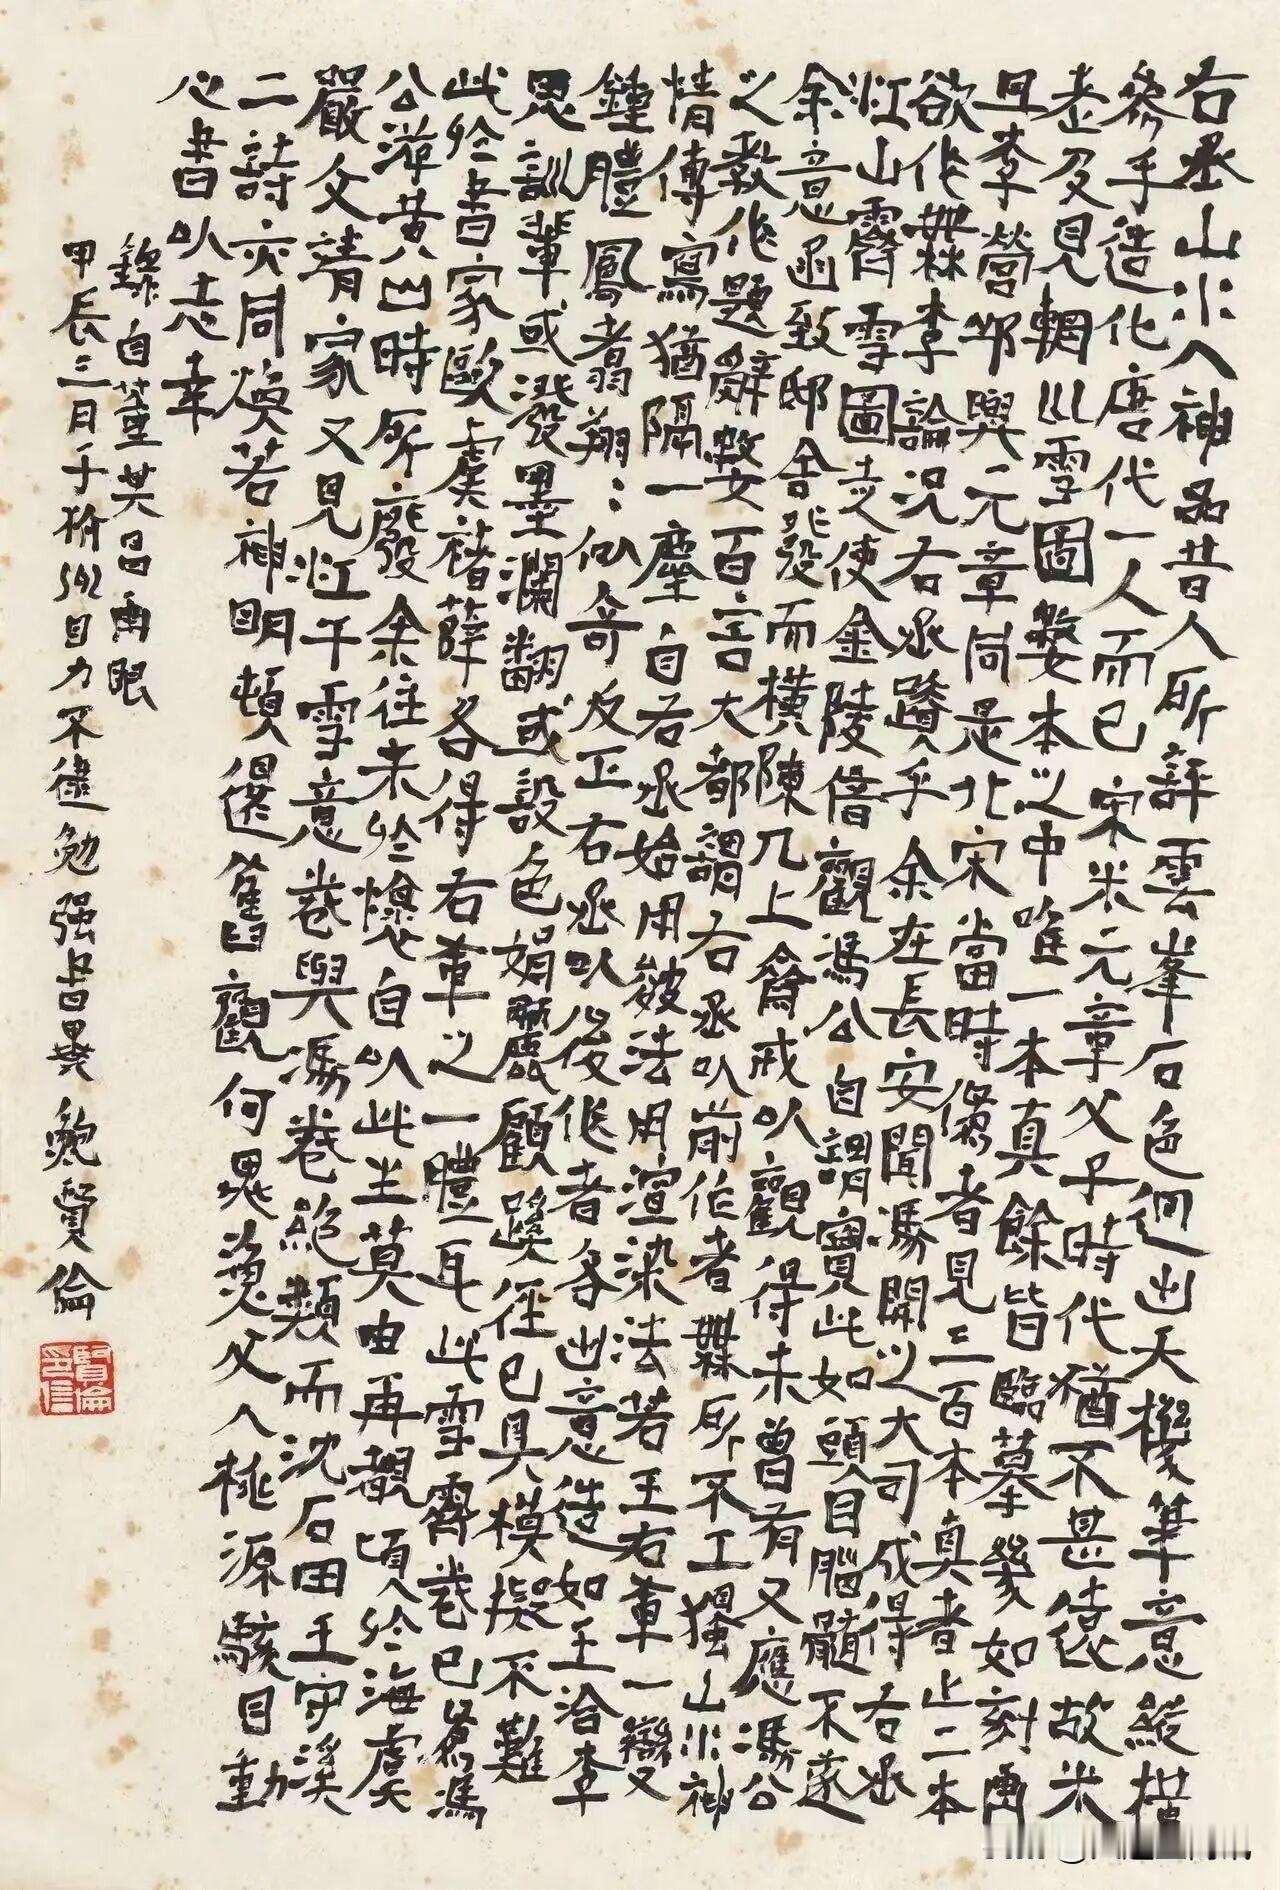 右丞山水入神品昔人所評雲峯石色迥出天機筆意縱橫
參乎造化唐代一人而已宋米元章父子時代猶不甚遠故米
老及見輞川雪圖數本之中唯一本真餘皆臨摹幾如刻畫
且李營邱與元章同是北宋當時偽者見三百本真者止二本
欲作無李論況右丞蹟乎余在長安聞馮開之大司成得右丞
江山霽雪圖走使金陵借觀馮公自謂寶此如頭目腦髓不逆
余意函致邸舍發而橫陳几上齋戒以觀得未曾有又應馮公
之教作題辭數百言大都謂右丞以前作者無所不工獨山水神
情傳寫猶隔一塵自右丞始用皴法用渲染法若王右軍一變
鍾體鳳翥翔〻似奇反正右丞以後作者各出意造如王洽李
思訓輩或潑墨瀾翻或設色娟麗顧蹊徑已具模擬不難
此於書家歐虞褚薛各得右軍之一體耳此雪霽卷已為馮
公游黃山時所廢余往來於懷自以此生莫由再覩頃於海虞
嚴文靖家又見江干雪意卷與馮卷絕類而沈石田王守溪
二詩亦同煥若神明頓還舊觀何異漁父入桃源駭目動
心書以志幸
錄自董其昌畫眼
甲辰三月于州目力不逮勉强書畢 鮑賢倫
賢倫印信